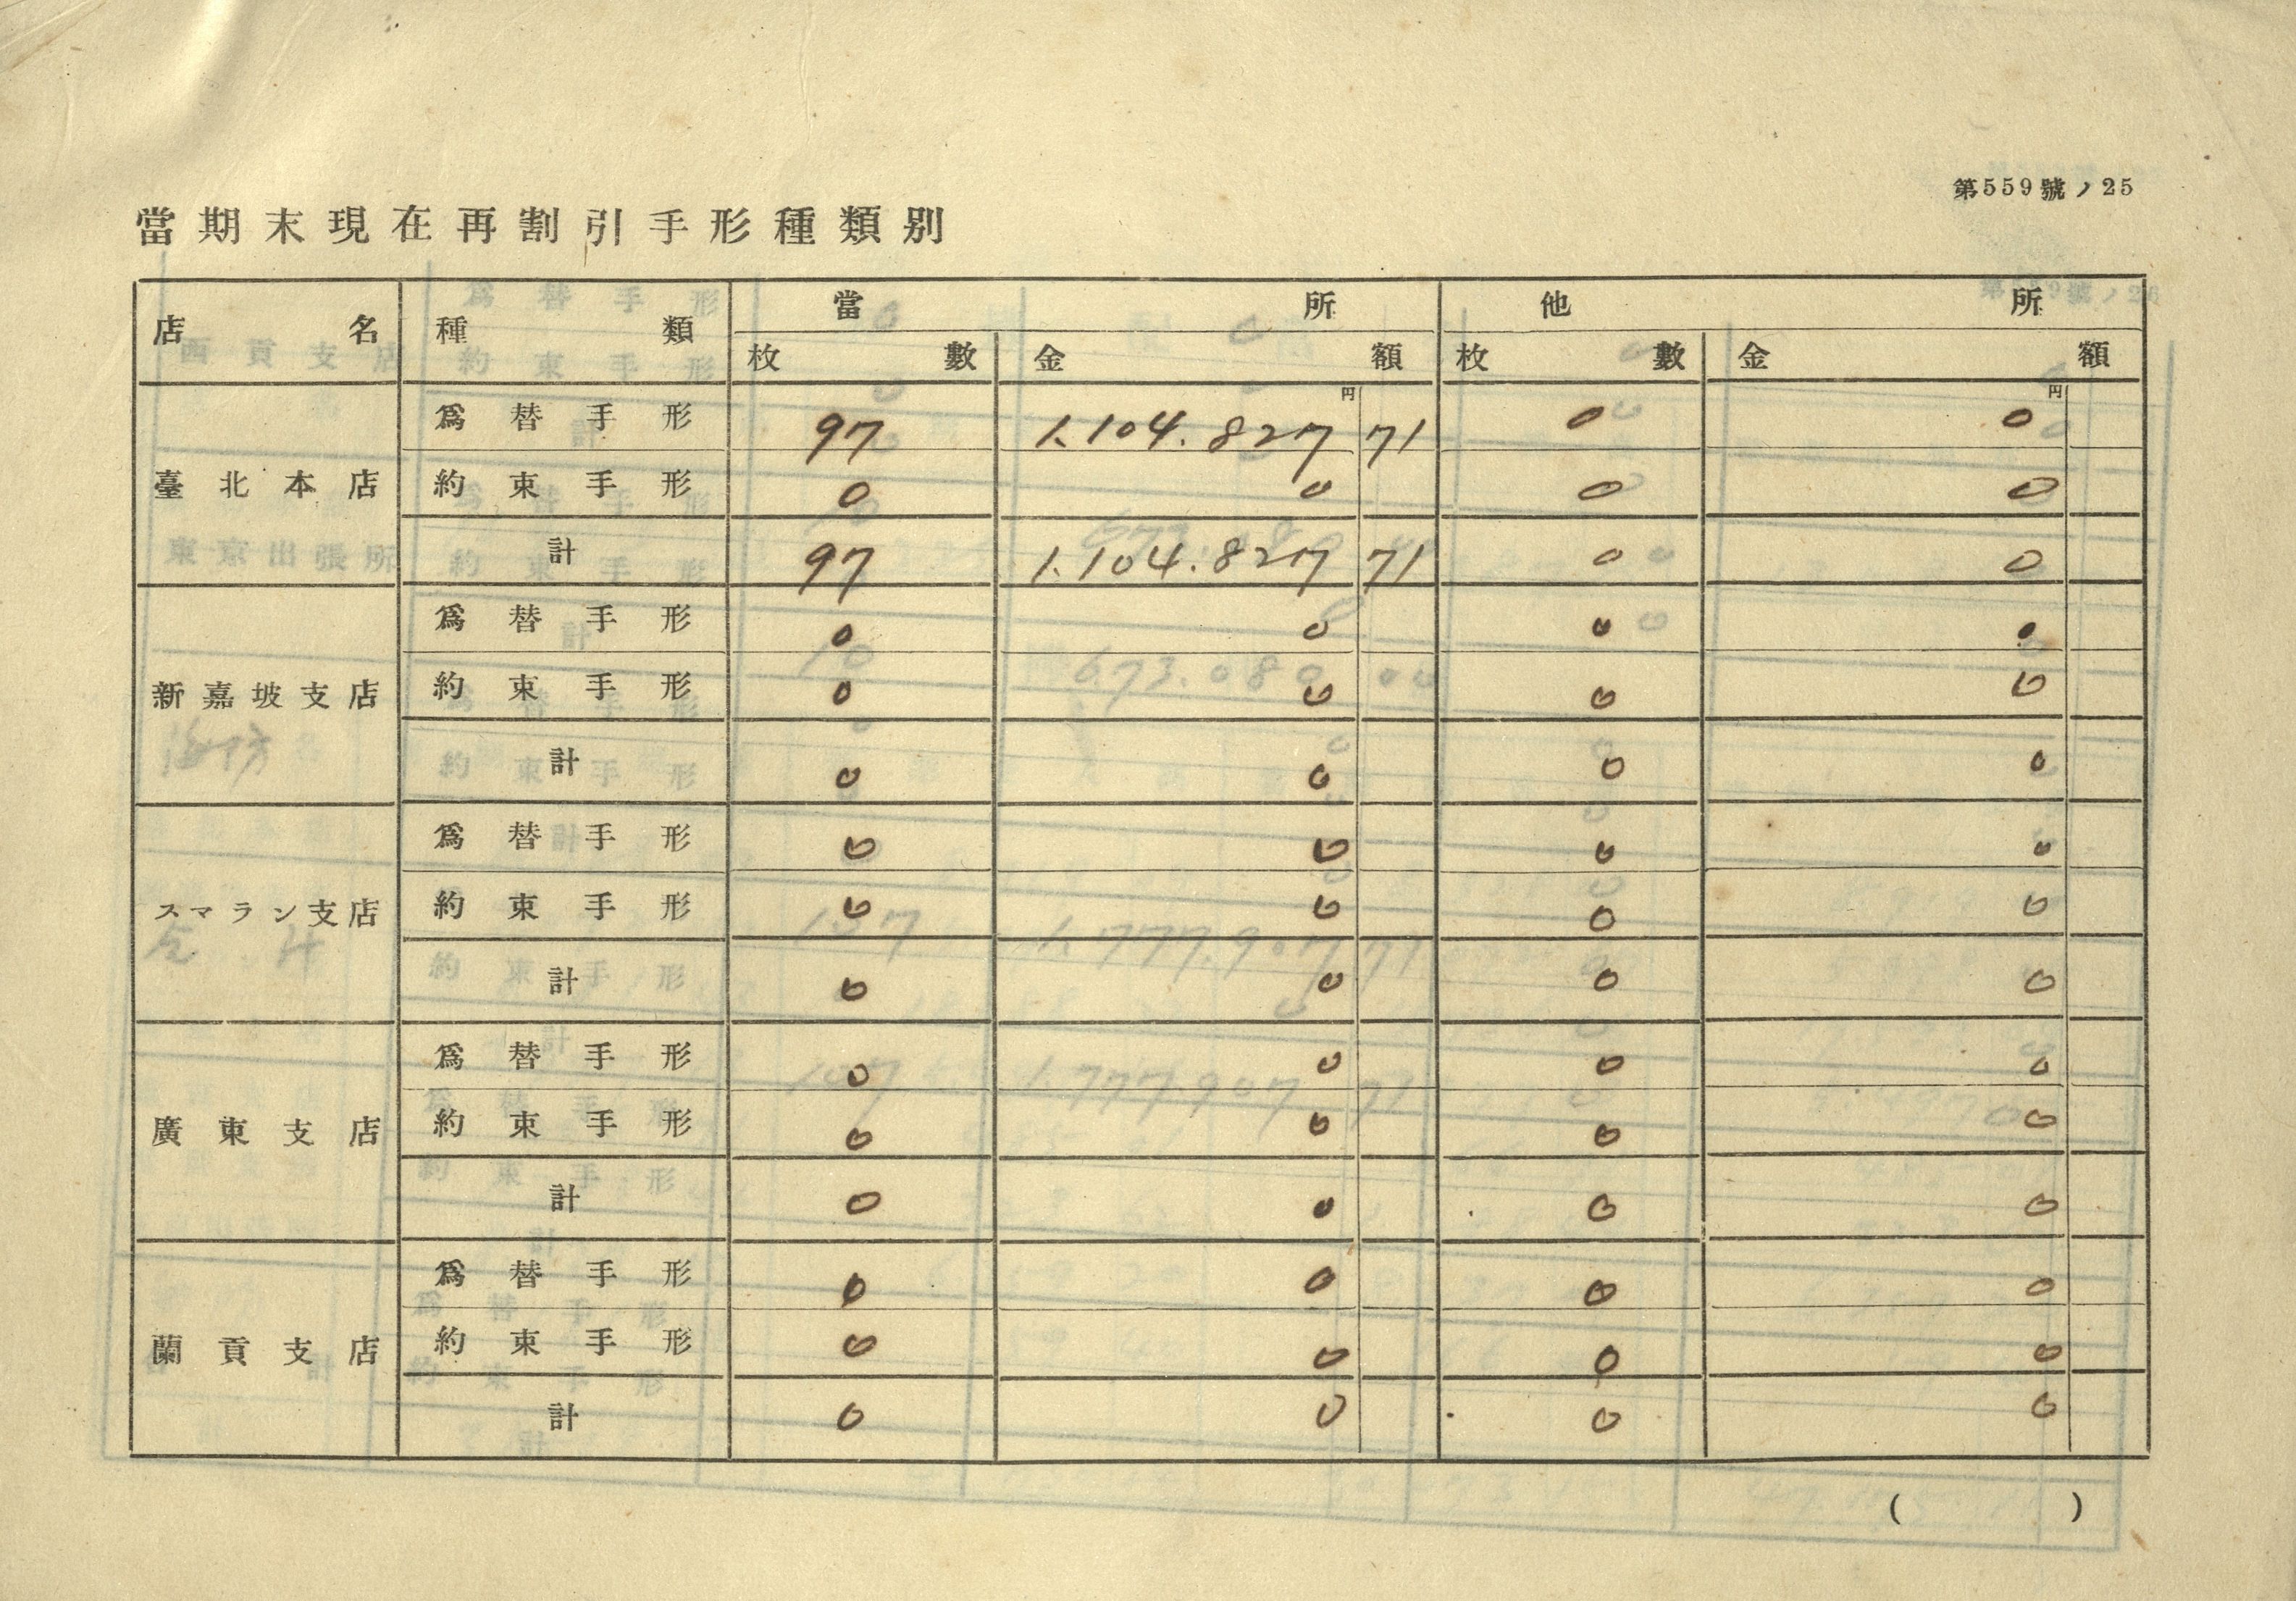 第559號ノ25
當期末現在再割引手形種類別
店名 種類 當所 他所
枚數 金額 枚數 金額
円 円
臺北本店 爲替手形 97 1.104.827 71 0 0
約束手形 0 0 0 0
計 97 1.104.827 71 0 0
新嘉坡支店 爲替手形 0 0 0 0
約束手形 0 0 0 0
計 0 0 0 0
スマラン支店 爲替手形 0 0 0 0
約束手形 0 0 0 0
計 0 0 0 0
廣東支店 爲替手形 0 0 0 0
約束手形 0 0 0 0
計 0 0 0 0
蘭貢支店 爲替手形 0 0 0 0
約束手形 0 0 0 0
計 0 0 0 0
( )